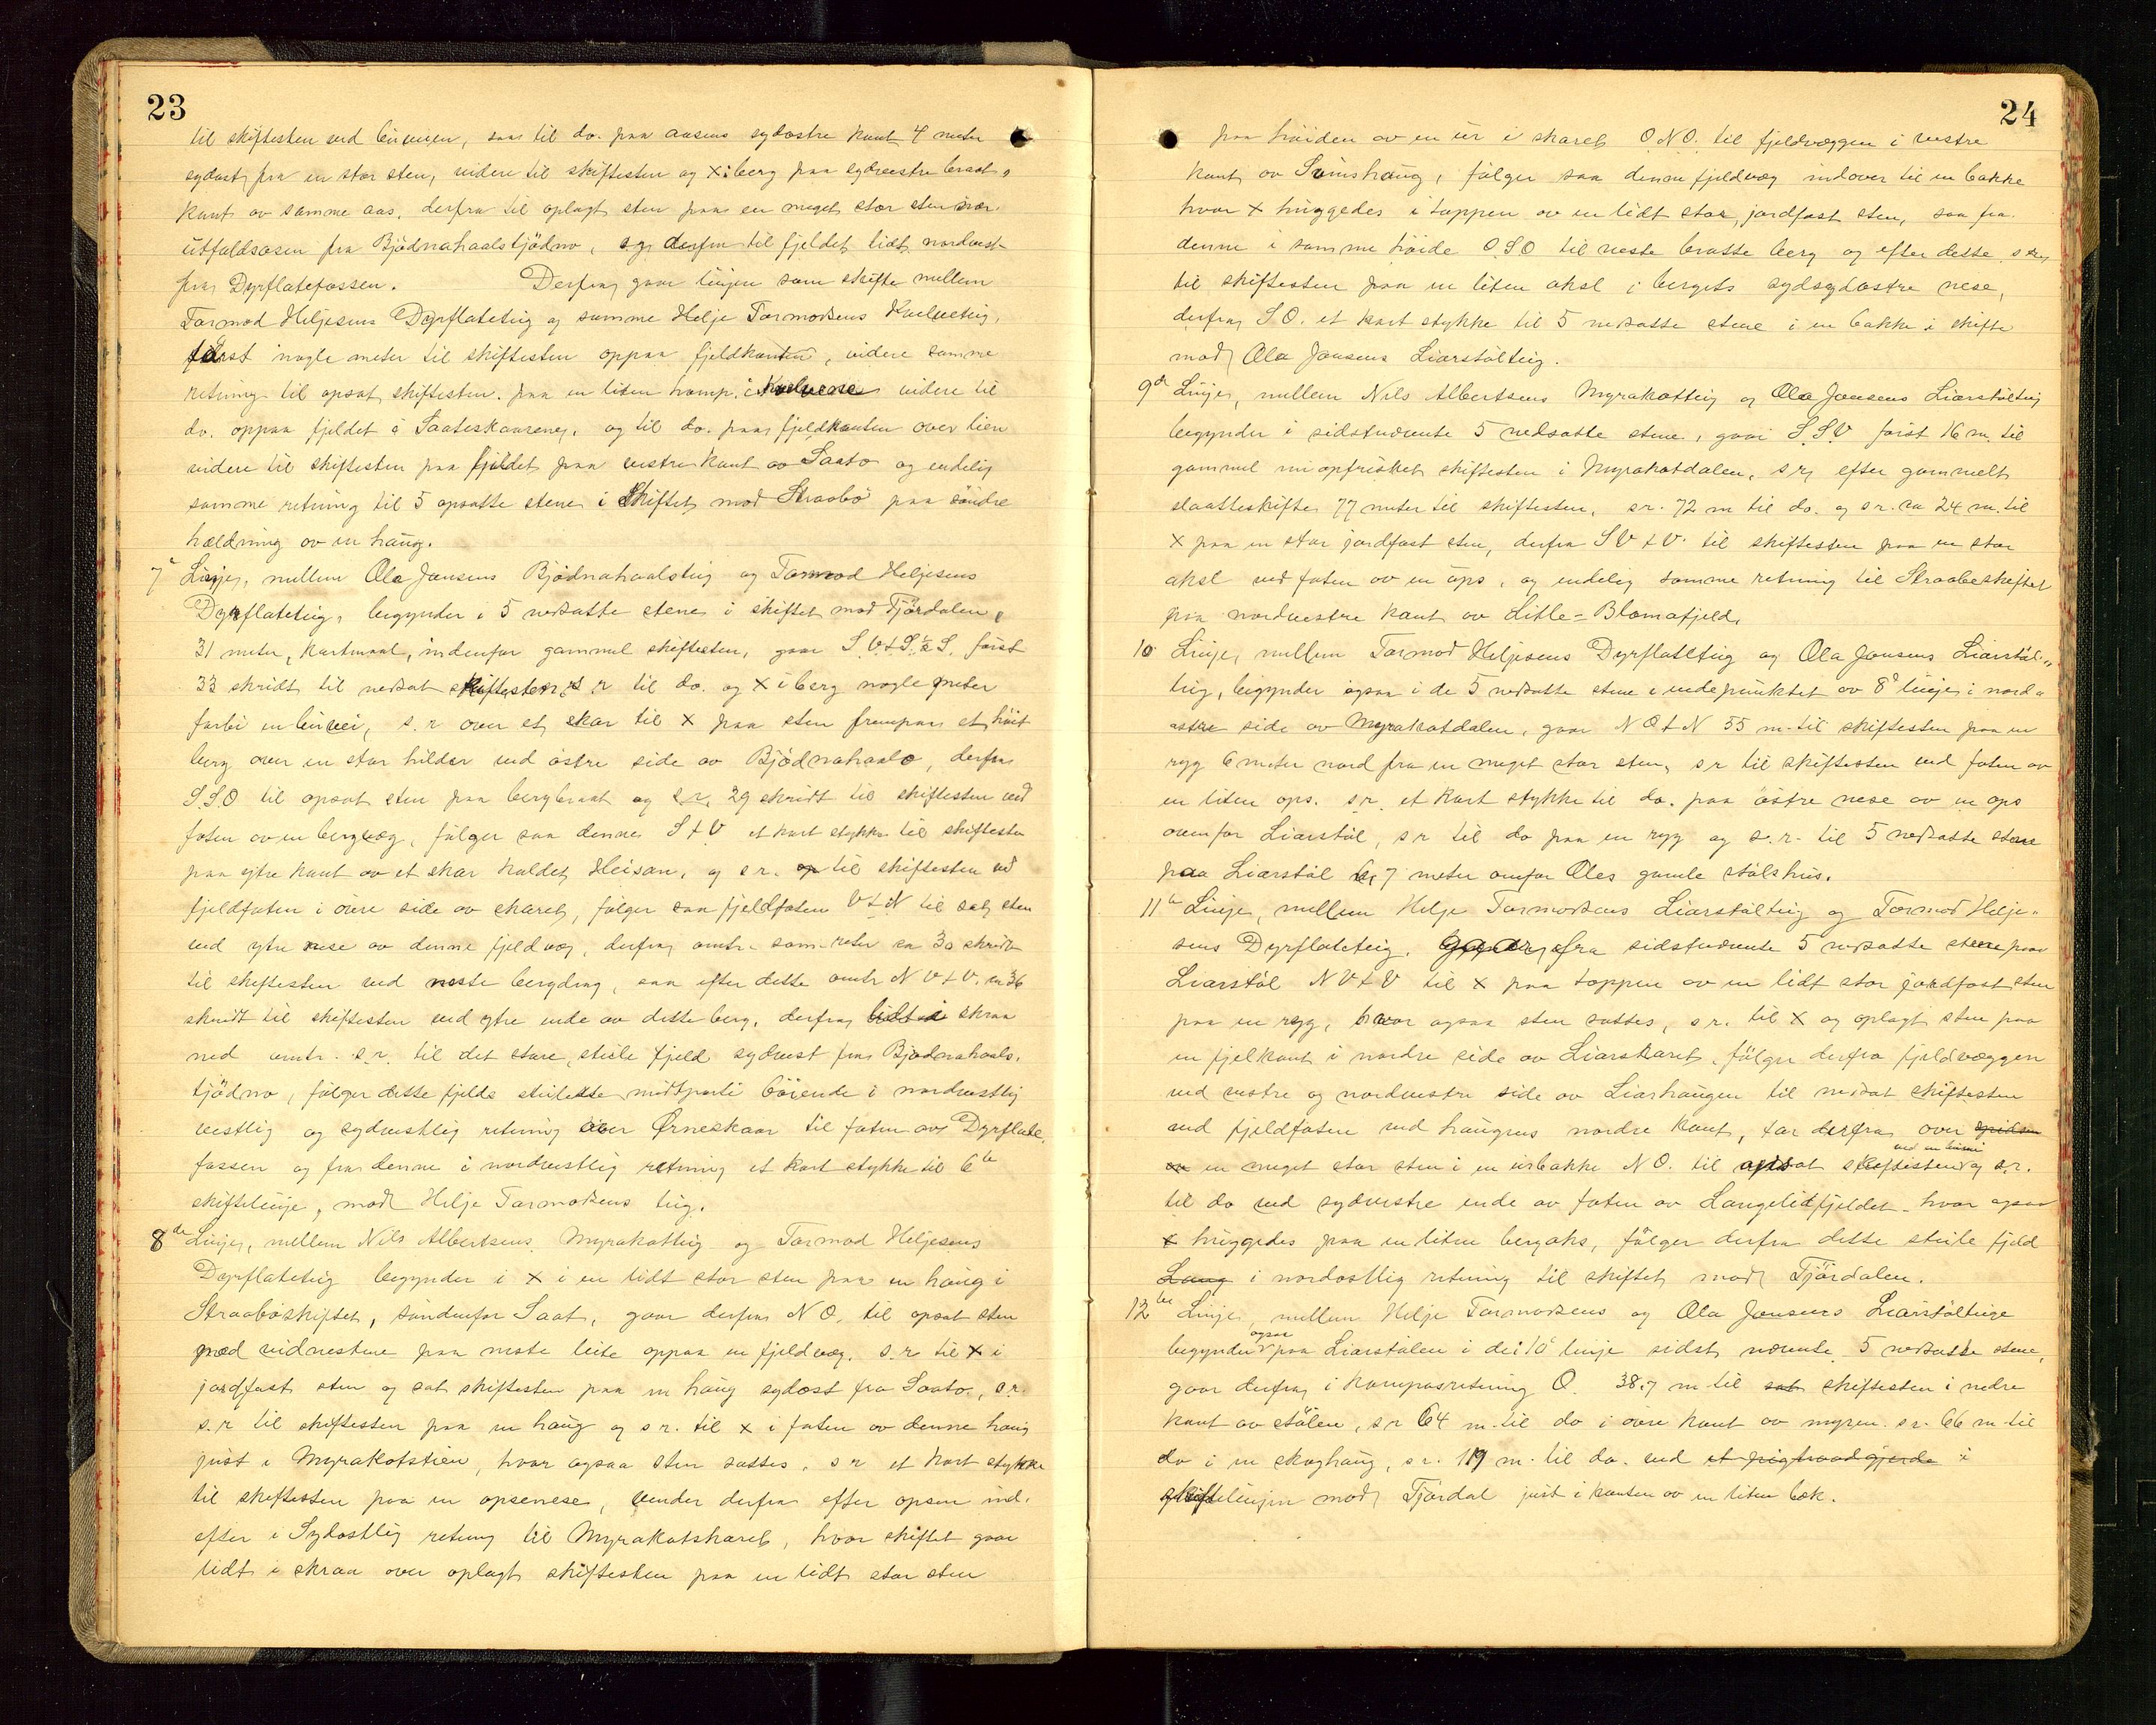 23
til skiftesten ved birunen, saa til do. paa aasens sydøstre kant 4 meter
sydøst fra en stor sten, videre til skiftesten og X i berg paa sydvestre brat-
kant av samme aas, derfra til oplagt sten paa en meget stor sten nær
utfaldsosen fra Bjödnahaalstjödno, og derfra til fjeldet lidt nordvest
fra Dyrflatefossen. Derfra gaar linjen som skifte mellem
Tormod Heljesens Dyrflateteig og samme Helje Tormodsens Kvelveteig,
først nogle meter til skiftesten oppaa fjeldkanten, videre samme
retning til opsat skiftesten paa en liten hamp. i videre til
do. oppaa fjeldet i Saateskaarene, og til do. paa fjeldkanten over lien
videre til skiftesten paa fjeldet paa vestre kant av Saato og endelig
samme retning til 5 opsatte stene i Skiftet mod Straabö paa söndre
hældning av en haug.
7 Linje, mellem Ola Jonsens Bjödnahaalsteig og Tormod Heljesens
Dyrflateteig, begynder i 5 nedsatte stene i skiftet mod Tjördalen,
31 meter, kartmaal, indenfor gammel skiftesten, gaar S.V.t.S.½S. först
33 skridt til nedsat skiftesten, s r til do. og X i berg nogle meter
forbi en buvei, s.r over et skar til X paa sten frempaa et höit
berg over en stor hilder ved östre side av Bjödnahaalo, derfra
S.S.O til opsat sten paa bergbraat og s.r. 29 skridt til skiftesten ved
foten av en bergvæg, fölger saa denne S t V et kort stykke til skiftesten
paa ytre kant av et skar kaldet Heisan, og s r. op til skiftesten ved
fjeldfoten i övre side av skaret, fölger saa fjeldfoten V t N til sat sten
ved ytre nese av denne fjeldvæg, derfra omtr. sam. retn ca 30 skridt
til skiftesten ved neste bergdrag, saa efter dette omtr N V t V. ca 36
skridt til skiftesten ved ytre ende av dette berg, derfra lidt i skraa
ned omtr. s.r. til det store, steile fjeld sydvest fra Bjödnahaals-
tjödno, fölger dette fjelds steileste midtparti böiende i nordvestlig
vestlig og sydvestlig retning over Ørneskaar til foten av Dyrflate-
fossen og fra denne i nordvestlig retning et kort stykke til 6te
skiftelinje, mod Helje Tormodsens teig.
8de Linje, mellem Nils Albertsens Myrakotteig og Tormod Heljesens
Dyrflateteig begynder i X i en lidt stor sten paa en haug i
Straaböskiftet, söndenfor Saat, gaar derfra N O, til opsat sten
med vidnestene paa neste leite oppaa en fjeldvæg, s.r til X i
jordfast sten og sat skiftesten paa en haug sydost fra Saato, s.r.
s.r til skiftesten paa en haug og s r. til X i foten av denne haug
just i Myrakotstien, hvor ogsaa sten sattes, s r et kort stykke
til skiftesten paa en opsenese, vender derfra efter opsen ind-
efter i Sydostlig retning til Myrakotskaret, hvor skiftet gaar
lidt i skraa over oplagt skiftesten paa en lidt stor sten
24
paa höiden av en ur i skaret O.N.O. til fjeldvæggen i vestre
kant av Svinshaug, fölger saa denne fjeldvæg indover til en bakke
hvor X huggedes i toppen av en lidt stor, jordfast sten, saa fra
denne i samme höide O.S.O til neste bratte berg og efter dette s.r.
til skiftesten paa en liten aksl i bergets sydsydöstre nese,
derfra S O. et kort stykke til 5 nedsatte stene i en bakke i skifte
mod Ola Jonsens Liarstölteig.
9de Linje, mellem Nils Albertsens Myrakotteig og Ola Jonsens Liarstölteig
begynder i sidstnævnte 5 nedsatte stene, gaar S.S.V först 16 m. til
gammel nu opfrisket skiftesten i Myrakotdalen, s r, efter gammelt
slaatteskifte 77 meter til skiftesten, s r. 72 m til do. og s r. ca 24 m. til
X paa en stor jordfast sten, derfra S V t V. til skiftesten paa en stor
aksl ved foten av en ups, og endelig samme retning til Straaböskiftet
paa nordvestre kant av Litle=Blomafjeld.
10 Linje, mellem Tormod Heljesens Dyrflateteig og Ola Jonsens Liarstöl-
teig, begynder ogsaa i de 5 nedsatte stene i endepunktet av 8de linje i nord-
østre side av Myrakotdalen, gaar N O t N 55 m. til skiftesten paa en
ryg 6 meter nord fra en meget stor sten, s r til skiftesten ved foten av
en liten ops. s r. et kort stykke til do. paa östre nese av en ops
ovenfor Liarstöl, s r til do paa en ryg og s.r. til 5 nedsatte stene
paa Liarstöl 6,7 meter ovnfor Oles gamle stölshus.
11te Linje, mellem Helje Tormodsens Liarstölteig og Tormod Helje-
sens Dyrflateteig. gaar, fra sidstnævnte 5 nedsatte stene paa
Liarstöl N V t V til X paa toppen av en lidt stor jordfast sten
paa en ryg, hvor ogsaa sten sattes, s r. til X og oplagt sten paa
en fjelkant i nordre side av Liarskaret, fölger derfra fjeldvæggen
ved vestre og nordvestre side av Liarhaugen til nedsat skiftesten
ved fjeldfoten ved haugens nordre kant, tar derfra over
en meget stor sten i en urbakke N O. til opsat skiftesten og s.r.
til do ved sydvestre ende av foten av Langelidfjeldet hvor ogsaa
X huggedes paa en liten bergaks, fölger derfra dette steile fjeld
Lang i nordostlig retning til skiftet mod Tjördalen.
12te Linje, mellem Helje Tormodsens og Ola Jonsens Liarstölteige
begynder ogsaa paa Liarstölen i de i 10 linje sidst nævnte 5 nedsatte stene,
gaar derfra i kompasretning O. 38,7 m til sat skiftesten i nedre
kant av stölen, s r 64 m. til do i övre kant av myren. s r. 66 m. til
do i en skoghaug, s r. 119 m. til do. ved et pigtraadgjerde i
skiftelinjen mod Tjördal just i kanten av en liten bæk.